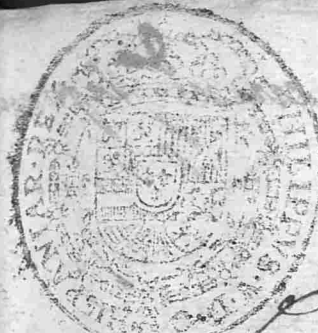 PHILIPPUS V D G HISPANIAR REX